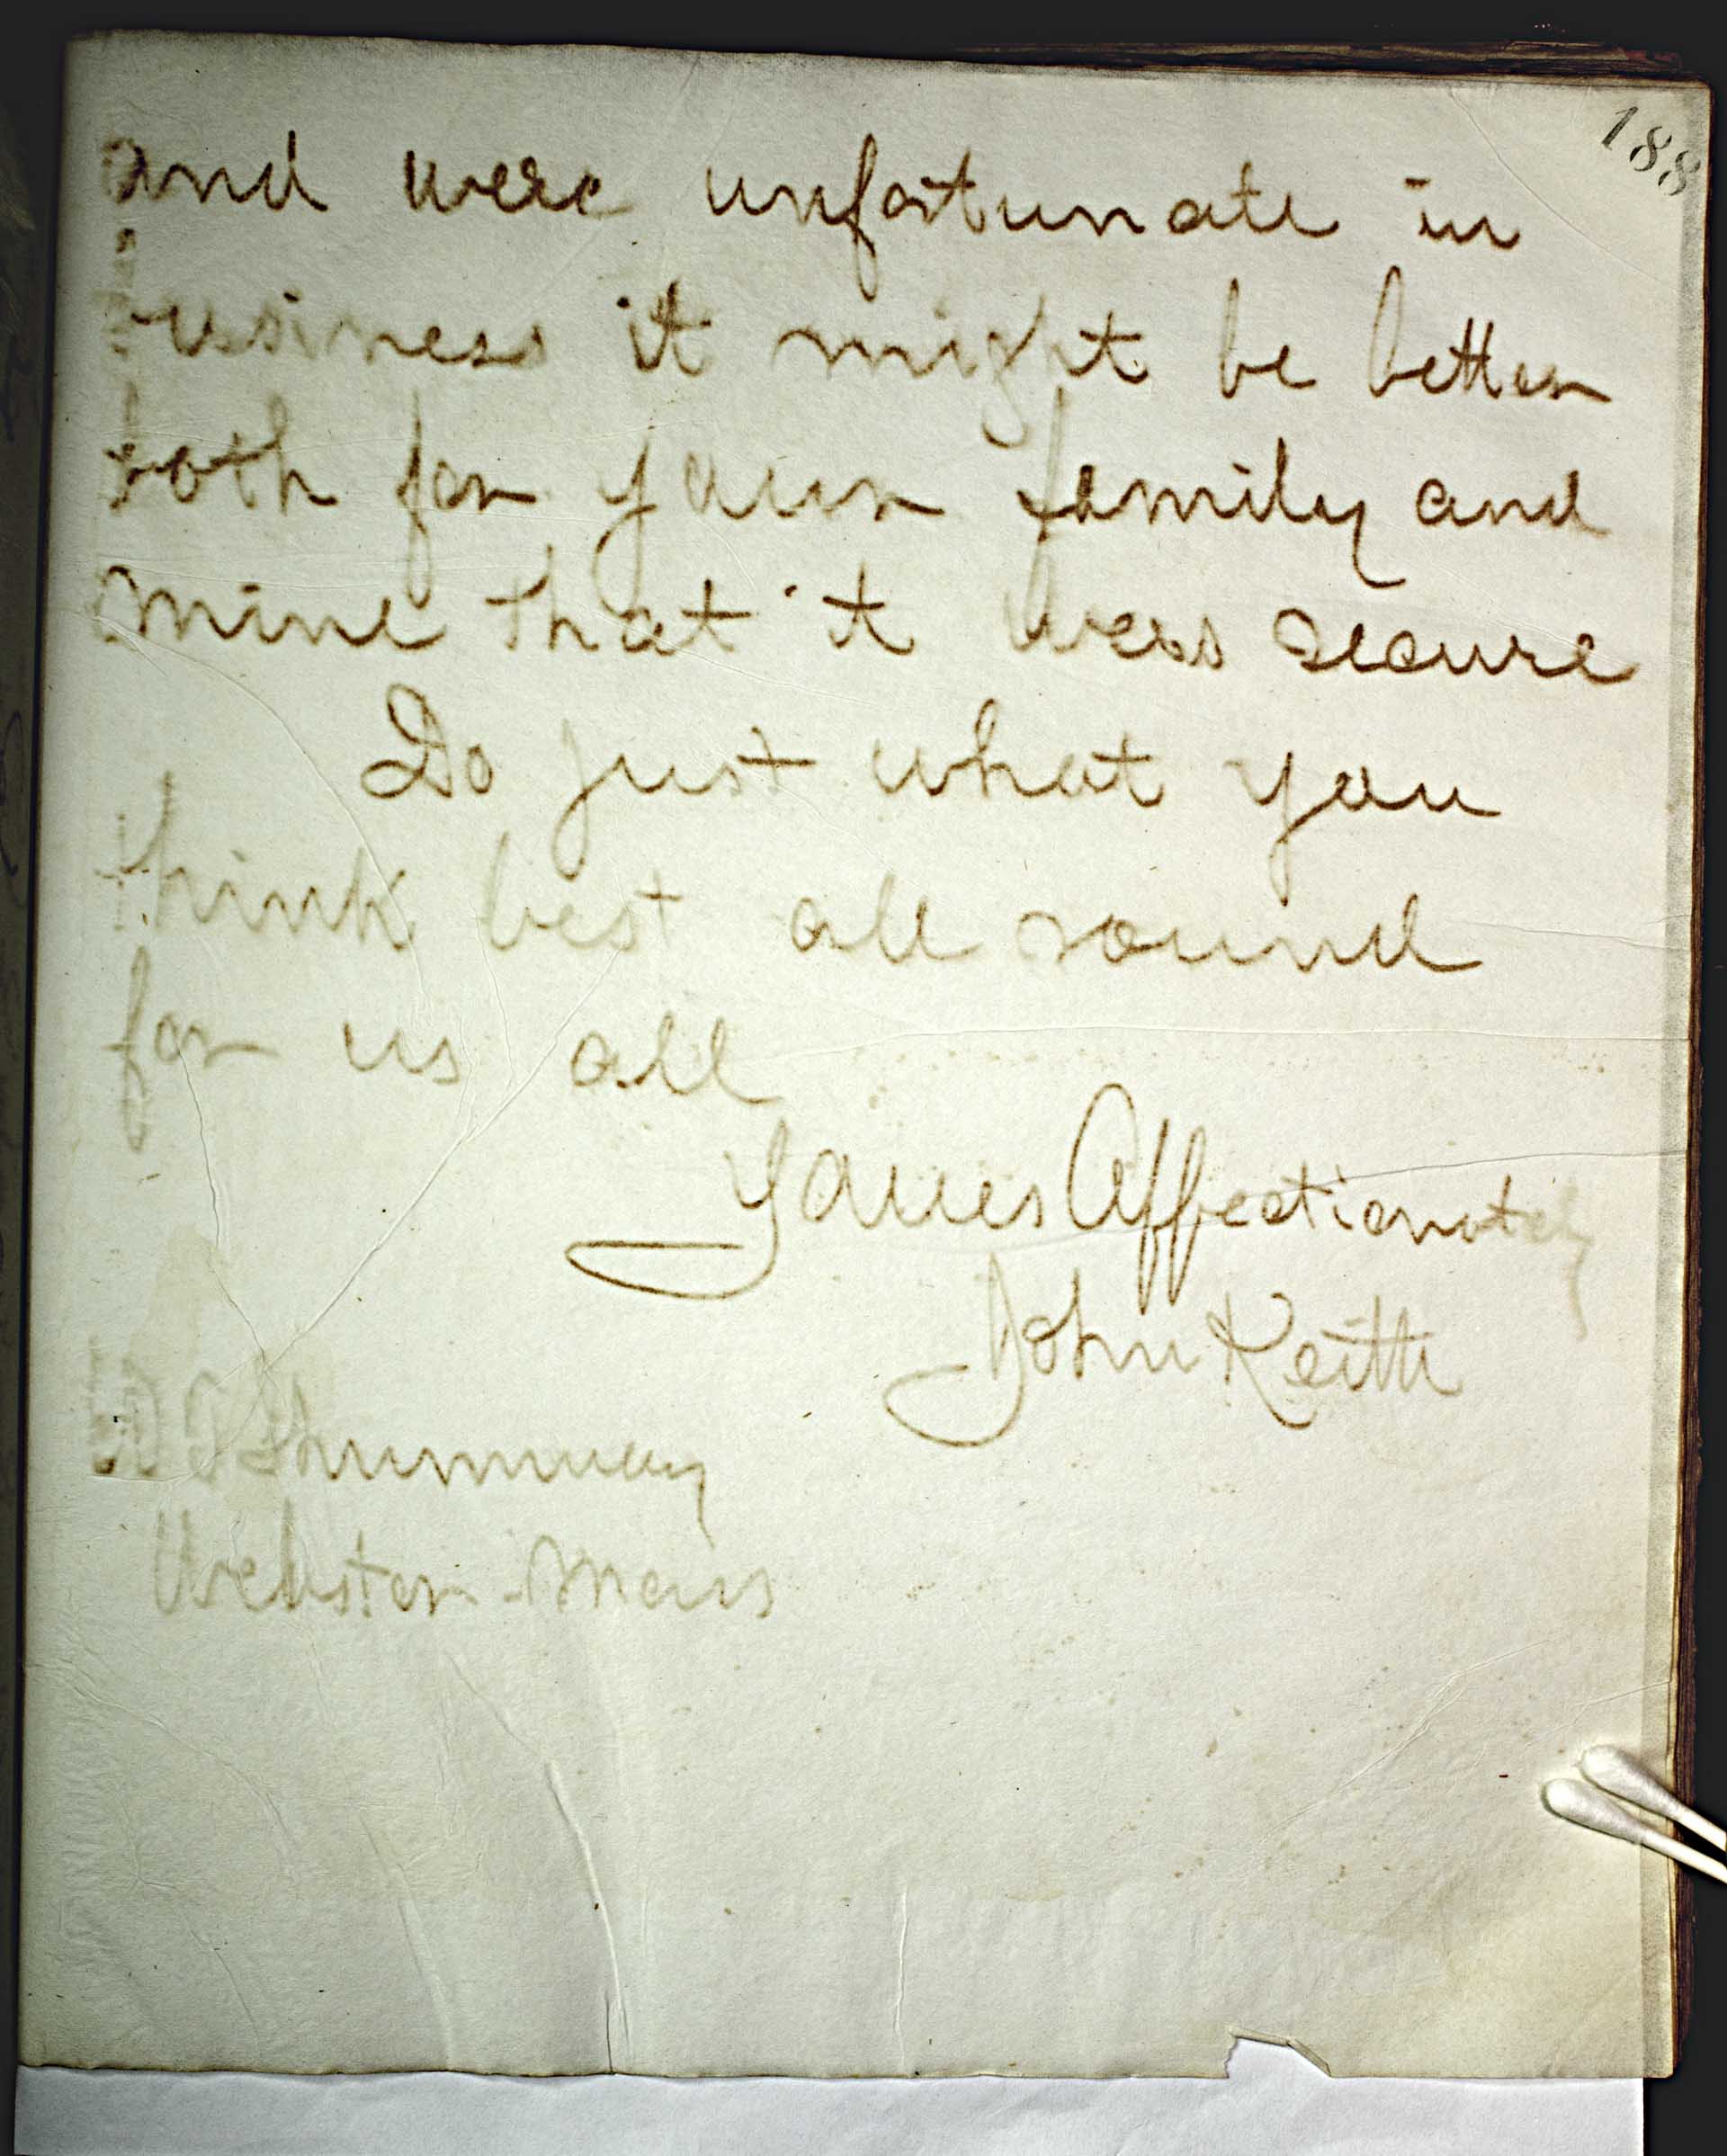 188
and were unfortunate in
business it might be better
both for your family and
mine that it was secure
Do just what you
think best all round
for us all
Yours Affectionately
John Keith
Shumway
Webster Mass